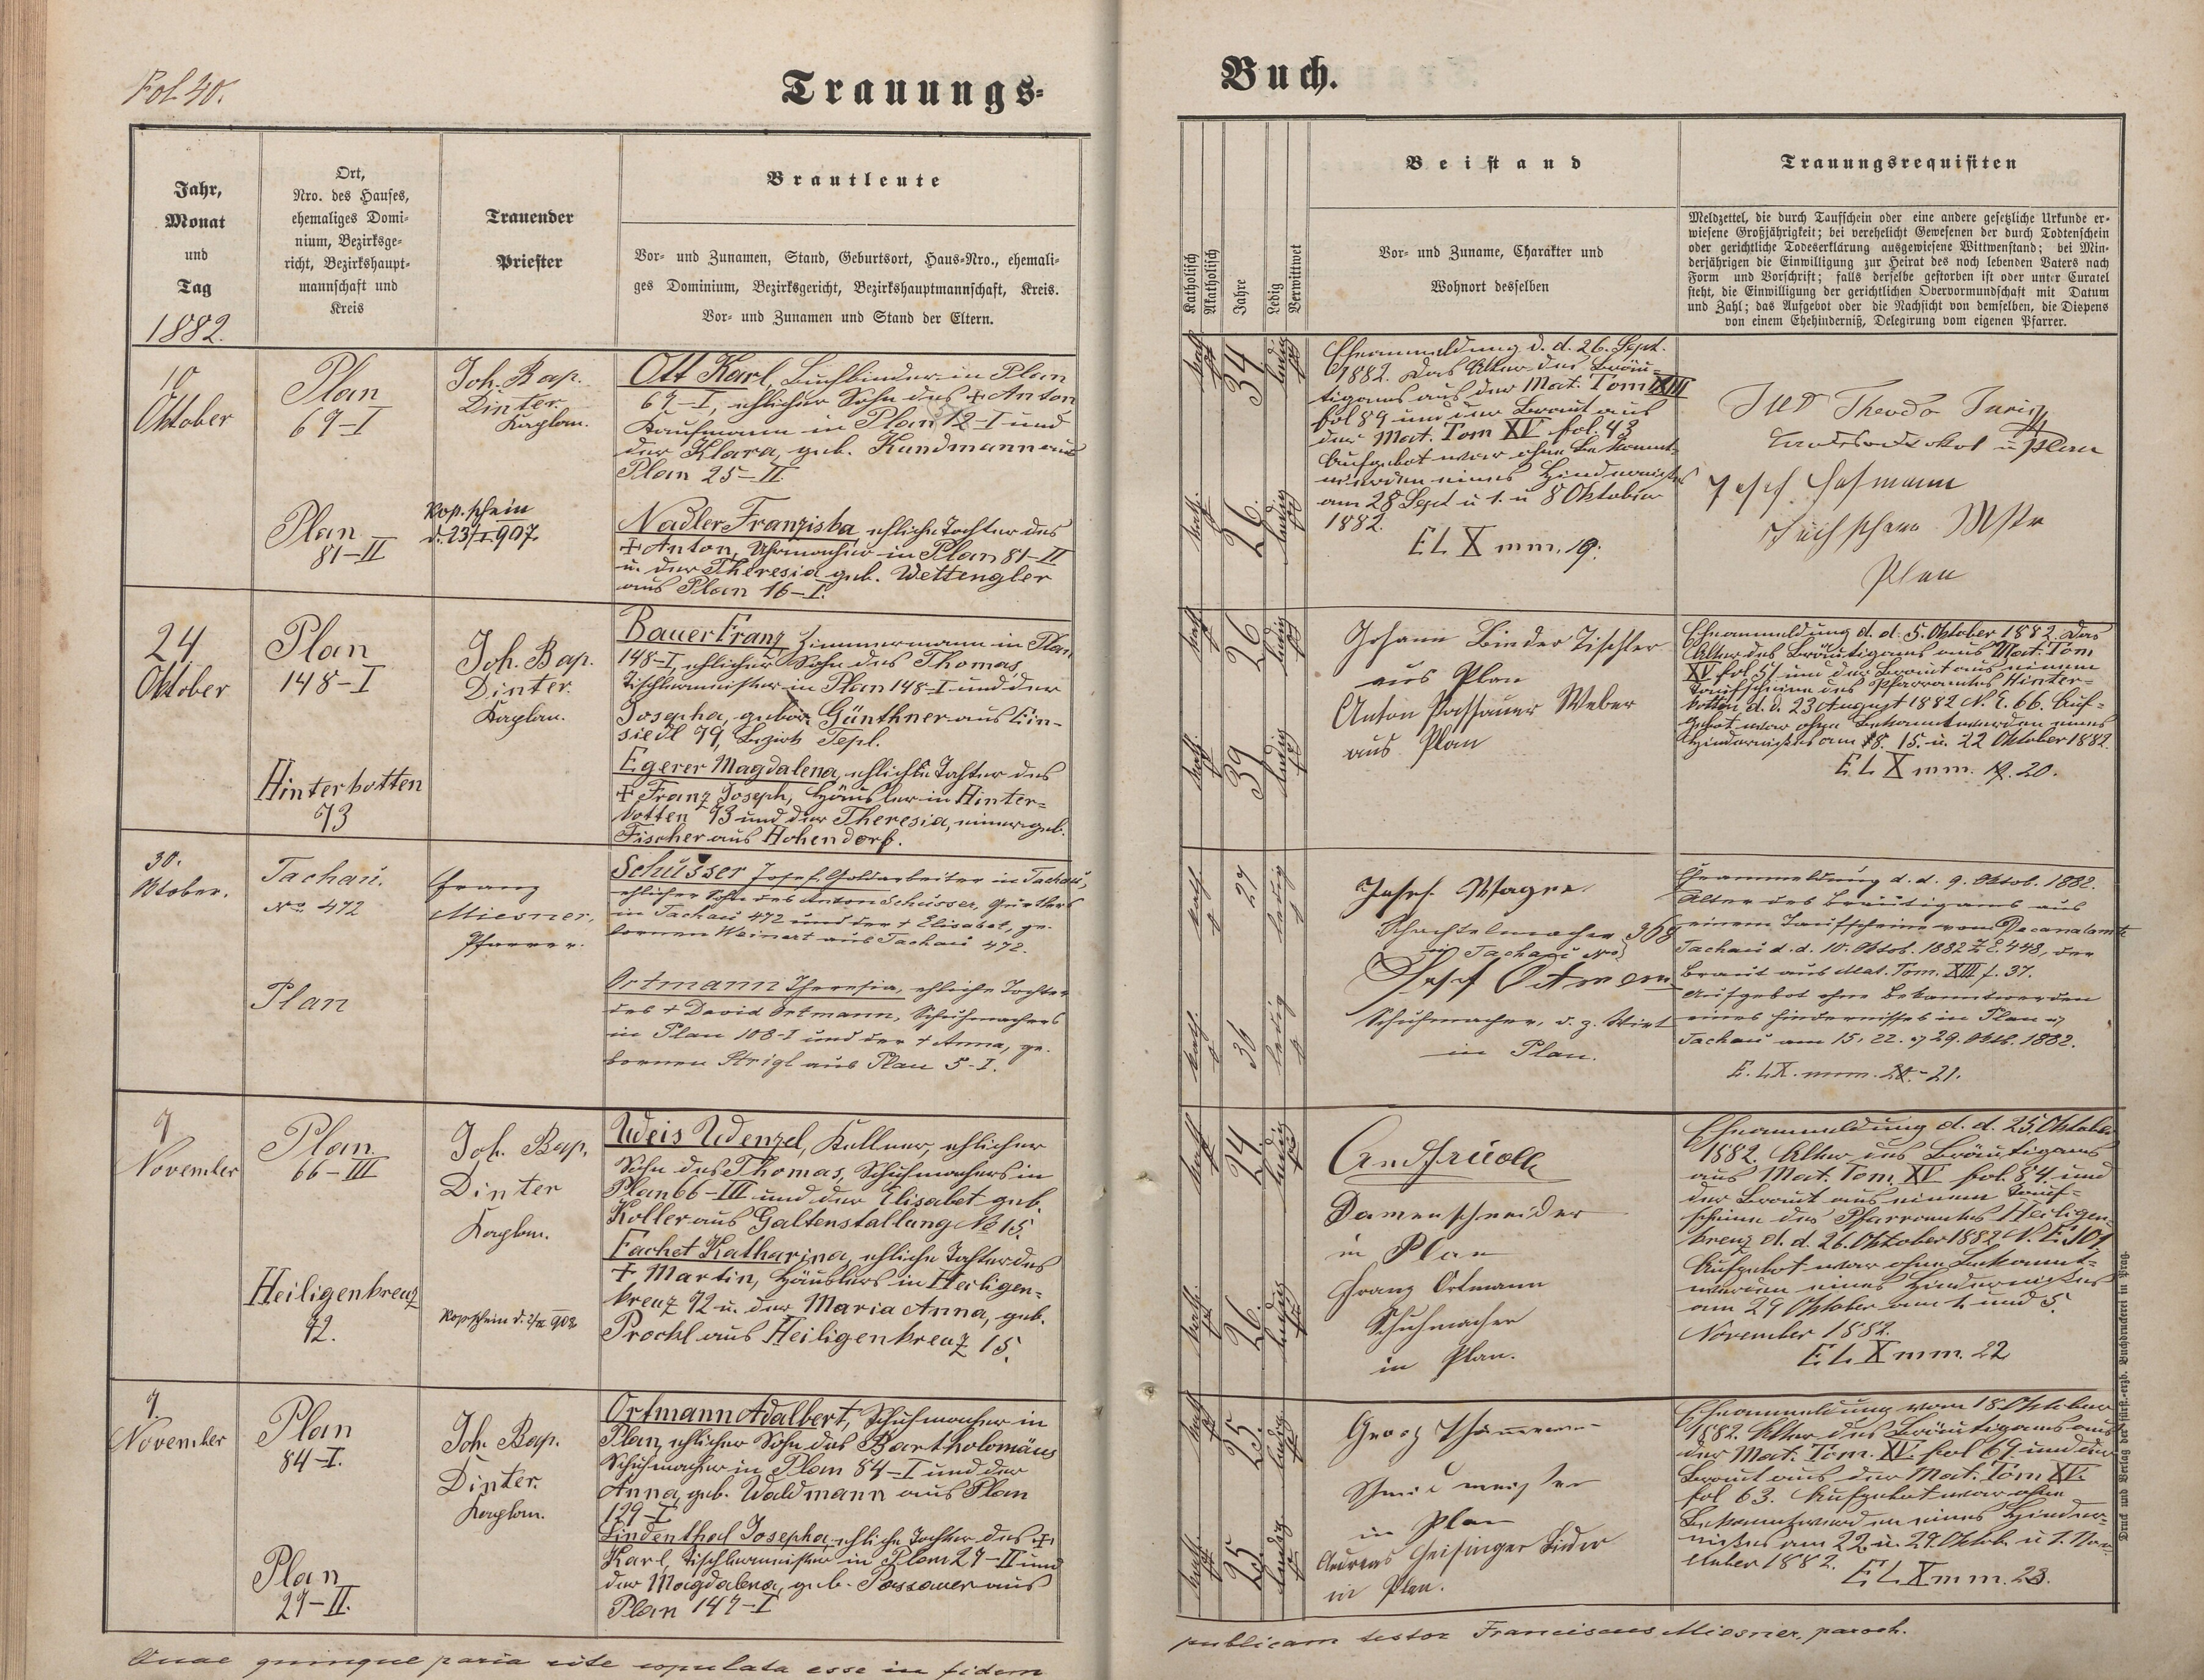 Fol. 40.
Trauungs-
Jahr,
Monat
und
Tag
1882.
Ort,
Nro. des Hauses,
ehemaliges Domi-
nium, Bezirksge-
richt, Bezirkshaupt-
mannschaft und
Kreis
Trauender
Priester
Brautleute
Vor- und Zunamen, Stand, Geburtsort, Haus-Nro., ehemali-
ges Dominium, Bezirksgericht, Bezirkshauptmannschaft, Kreis.
Vor- und Zunamen und Stand der Eltern.
10
Oktober
Plan
67-I
Joh. Bap.
Dinter.
Kaplan.
Ott Karl, Buchbinder in Plan
67-I, ehlicher Sohn des + Anton
Kaufmann in Plan 12-I und
der Klara, geb. Kundmann aus
Plan 25-II.
Plan
81-II
Kop. schein
d. 23/I 907.
Nadler Franziska ehliche Tochter des
+ Anton, Uhrmacher in Plan 81-II
u. der Theresia geb. Wettengler
aus Plan 16-I.
24
Oktober
Plan
148-I
Joh. Bap.
Dinter.
Kaplan.
Bauer Franz Zimmermann in Plan
148-I, ehlicher Sohn des Thomas,
Tischlermeister in Plan 148-I und der
Josepha, gebor. Günthner aus Ein-
siedl 79, Bezirk Tepl.
Hinterkotten
73
Egerer Magdalena, ehliche Tochter des
+ Franz Joseph, Häusler in Hinter-
kotten 73 und der Theresia, einer geb.
Fischer aus Hohendorf.
30.
Oktober.
Tachau.
No. 472
Franz
Miesner,
Pfarrer.
Schüsser Josef, Goldarbeiter in Tachau,
ehlicher Sohn des Anton Schüsser, Gürtlers
in Tachau 472 und der + Elisabet, ge-
bornen Weinert aus Tachau 472.
Plan
Ortmann Theresia, ehliche Tochter
des + David Ortmann, Schuhmachers
in Plan 108-I und der + Anna, ge-
bornen Strigl aus Plan 5-I.
7
November
Plan
66-III
Joh. Bap.
Dinter
Kaplan.
Weis Wenzel, Kellner, ehlicher
Sohn des Thomas, Schuhmachers in
Plan 66-III und der Elisabet geb.
Koller aus Galtenstallung No 15.
Heiligenkreuz
72.
Kopschein d. 908
Fachet Katharina, ehliche Tochter des
+ Martin, Häuslers in Heiligen-
kreuz 72 u. der Maria Anna, geb.
Prockl aus Heiligenkreuz 15.
7.
November
Plan
84-I.
Joh. Bap.
Dinter.
Kaplan.
Ortmann Adalbert, Schuhmacher in
Plan, ehlicher Sohn des Bartholomäus
Schuhmacher in Plan 84-I und der
Anna, geb. Waldmann aus Plan
129-I
Plan
27-II.
Lindenthal Josepha, ehliche Tochter des +
Karl, Tischlermeister in Plan 27-II und
der Magdalena, geb. Passauer aus
Plan 147-I
Quae quinque paria rite copulata esse in fidem
Buch.
Katholisch
Akatholisch
Jahre
Ledig
Verwittwet
Beistand
Vor- und Zuname, Charakter und
Wohnort desselben
Trauungsrequisiten
Meldzettel, die durch Taufschein oder eine andere gesetzliche Urkunde er-
wiesene Großjährigkeit; bei verehelicht Gewesenen der durch Todtenschein
oder gerichtliche Todeserklärung ausgewiesene Wittwenstand; bei Min-
derjährigen die Einwilligung zur Heirat des noch lebenden Vaters nach
Form und Vorschrift; falls derselbe gestorben ist oder unter Curatel
steht, die Einwilligung der gerichtlichen Obervormundschaft mit Datum
und Zahl; das Aufgebot oder die Nachsicht von demselben, die Dispens
von einem Ehehinderniß, Delegirung vom eigenen Pfarrer.
kath.
34
ledig
Eheanmeldung d. d. 26. Sept.
1882. Das Alter des Bräu-
tigams aus der Mat. Tom XIII
fol 89 und der Braut aus
der Mat. Tom XV fol. 43
Aufgebot war ohne Bekannt-
werden eines Hindernißes
am 28 Sept u 1. u 8 Oktober
1882.
E L X mm. 19.
kath.
26.
ledig
JUD Theodo
Plan
Josef Hofmann
Plan
kath.
26
ledig
Johann Binder Tischler
aus Plan
Anton Passauer Weber
aus Plan
kath.
39
ledig
Eheanmeldung d. d. 5. Oktober 1882. Das
Alter des Bräutigams aus Mat. Tom
XV fol 51 und der Braut aus einem
Taufscheine des Pfarramtes Hinter-
kotten d. d. 23 August 1882 N. E. 66. Auf-
gebot war ohne Bekanntwerden eines
Hindernißes am 8. 15. u. 22 Oktober 1882.
E. L X mm. 20.
kath.
27
ledig
Josef Wagner
Schachtelmacher 368
in Tachau No
Josef Ortmann
Schuhmacher, d. z. Wirt
in Plan.
kath.
36
ledig
Eheanmeldung d. d. 9. Oktob. 1882.
Alter des Bräutigams aus
einem Taufscheine vom Decanalamte
Tachau d. d. 10. Oktob. 1882 Z. E. 448, der
Braut aus Mat. Tom. XIII f. 37.
Aufgebot ohne Bekanntwerden
eines Hindernisses in Plan u
Tachau am 15. 22. u 29. Oktb. 1882.
E. L X. mm. 21.
kath.
24
ledig
Damenschneider
in Plan
Franz Ortmann
Schuhmacher
in Plan.
kath.
26.
ledig
Eheanmeldung d. d. 25. Oktober
1882. Alter des Bräutigams
aus Mat. Tom. XV fol. 84. und
der Braut aus einem Tauf-
scheine des Pfarramtes Heiligen-
kreuz d. d. 26. Oktober 1882 N. E. 101
Aufgebot war ohne Bekannt-
werden eines Hindernißes
am 29 Oktober am 1. und 5.
November 1882.
E L X mm. 22
kath.
25
ledig
Georg
Schmiedmeister
in Plan
Andreas Geisinger
in Plan.
kath.
25
ledig
Eheanmeldung vom 18. Oktober
1882. Alter des Bräutigams aus
der Mat. Tom. XV. fol 69. und der
Braut aus der Mat. Tom XV.
fol 63. Aufgebot war ohne
Bekanntwerden eines Hinder-
nißes am 22. u. 29. Oktob. u 1. Nov-
ember 1882.
E L X mm. 23.
Druck und Verlag der fürst.-erzb. Buchdruckerei in Prag.
publicam testor Franciscus Miesner, paroch.